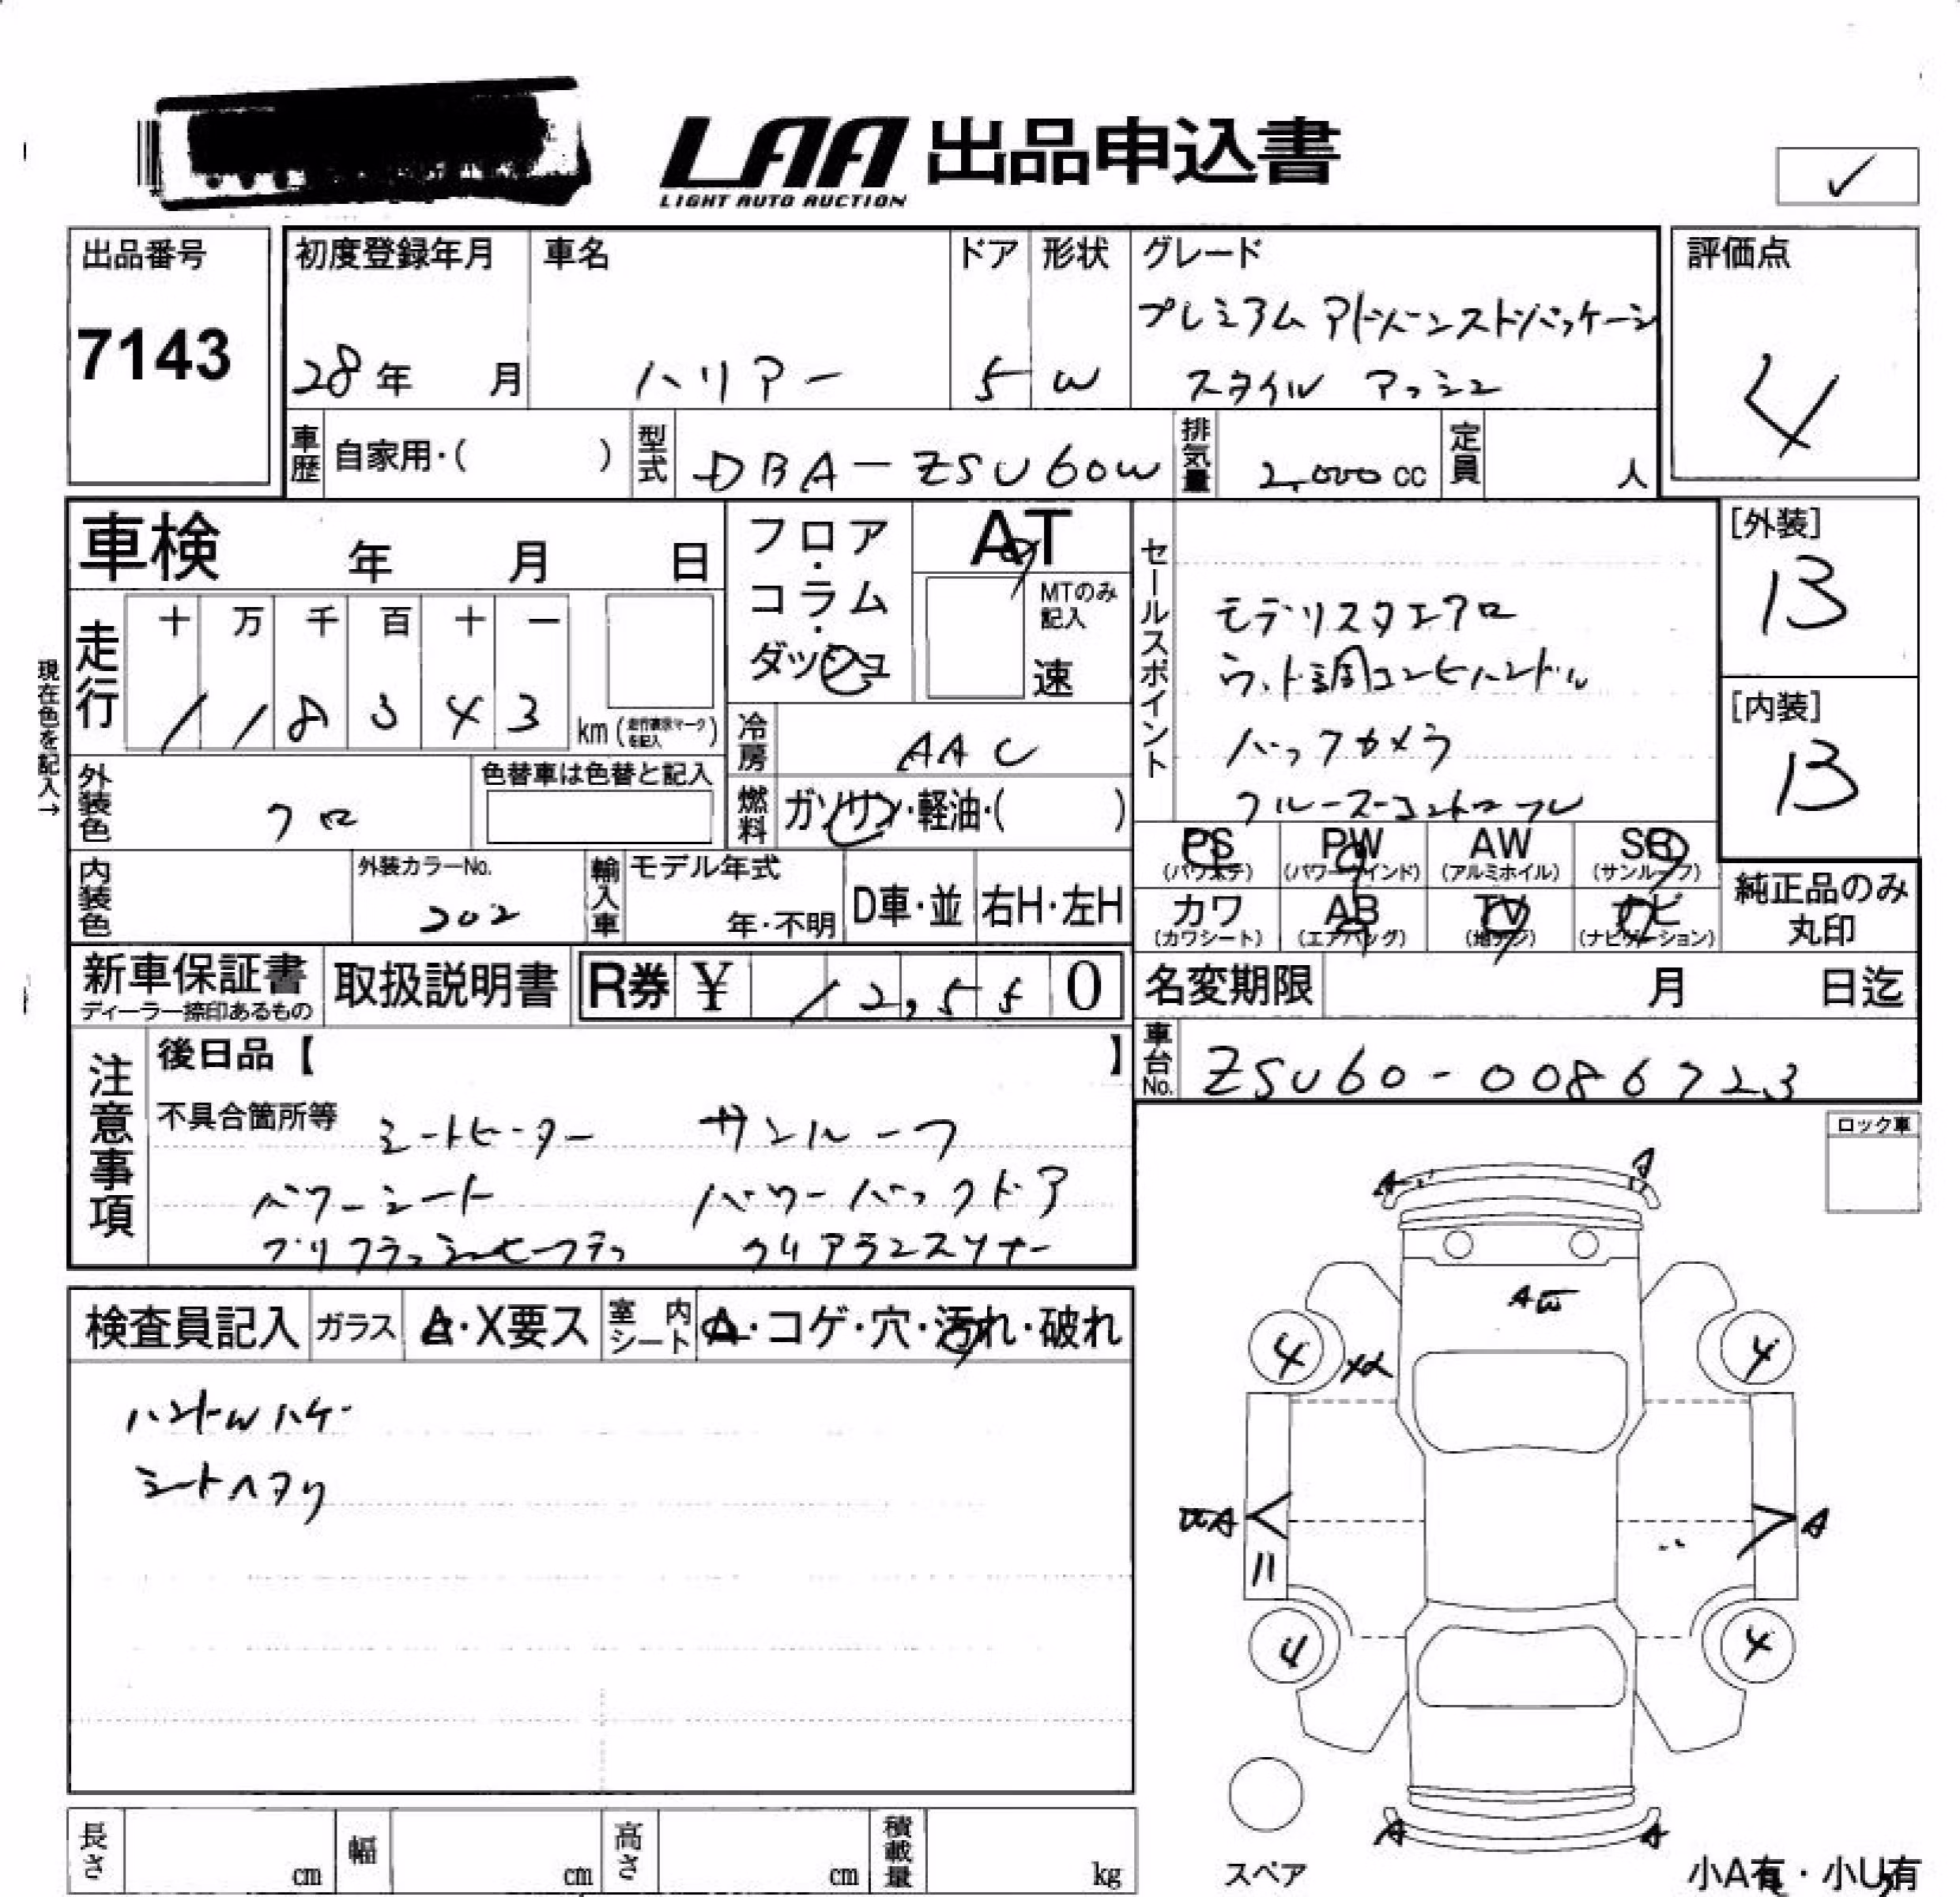 LAA 出品申込書
LIGHT AUTO AUCTION
✓
出品番号
7143
初度登録年月
28年 月
車名
ハリアー
ドア
5
形状
W
グレード
プレミアム アドバンストパッケージ
スタイル アッシュ
評価点
4
車歴 自家用・( )
型式 DBA-ZSU60W
排気量 2,000 cc
定員 人
車検 年 月 日
フロア・コラム・ダッシュ
AT
MTのみ記入
速
セールスポイント
モデリスタエアロ
ウッド調コンビハンドル
バックカメラ
クルーズコントロール
[外装]
B
[内装]
B
現在色を記入→
走行
十 万 千 百 十 一
1 1 8 3 4 3 km (走行メーターマークを記入)
冷房 AAC
燃料 ガソリン・軽油・( )
外装色 クロ
色替車は色替と記入
内装色
外装カラーNo.
202
輸入車
モデル年式
年・不明
D車・並
右H・左H
PS (パワステ)
PW (パワーウインド)
AW (アルミホイル)
SR (サンルーフ)
カワ (カワシート)
AB (エアバッグ)
TV (地デジ)
ナビ (ナビゲーション)
純正品のみ丸印
新車保証書
ディーラー捺印あるもの
取扱説明書
R券 ¥ 12,550
名変期限 月 日迄
車台No. ZSU60-0086723
注意事項
後日品【 】
不具合箇所等
シートヒーター サンルーフ
パワーシート パワーバックドア
プリクラッシュセーフティ クリアランスソナー
ロック車
検査員記入
ガラス A・X要ス
室内シート A・コゲ・穴・汚れ・破れ
ハンドルハゲ
シートヘタリ
A A
4 4
A A
4 4
A A
スペア
小A有・小U有
長さ cm
幅 cm
高さ cm
積載量 kg